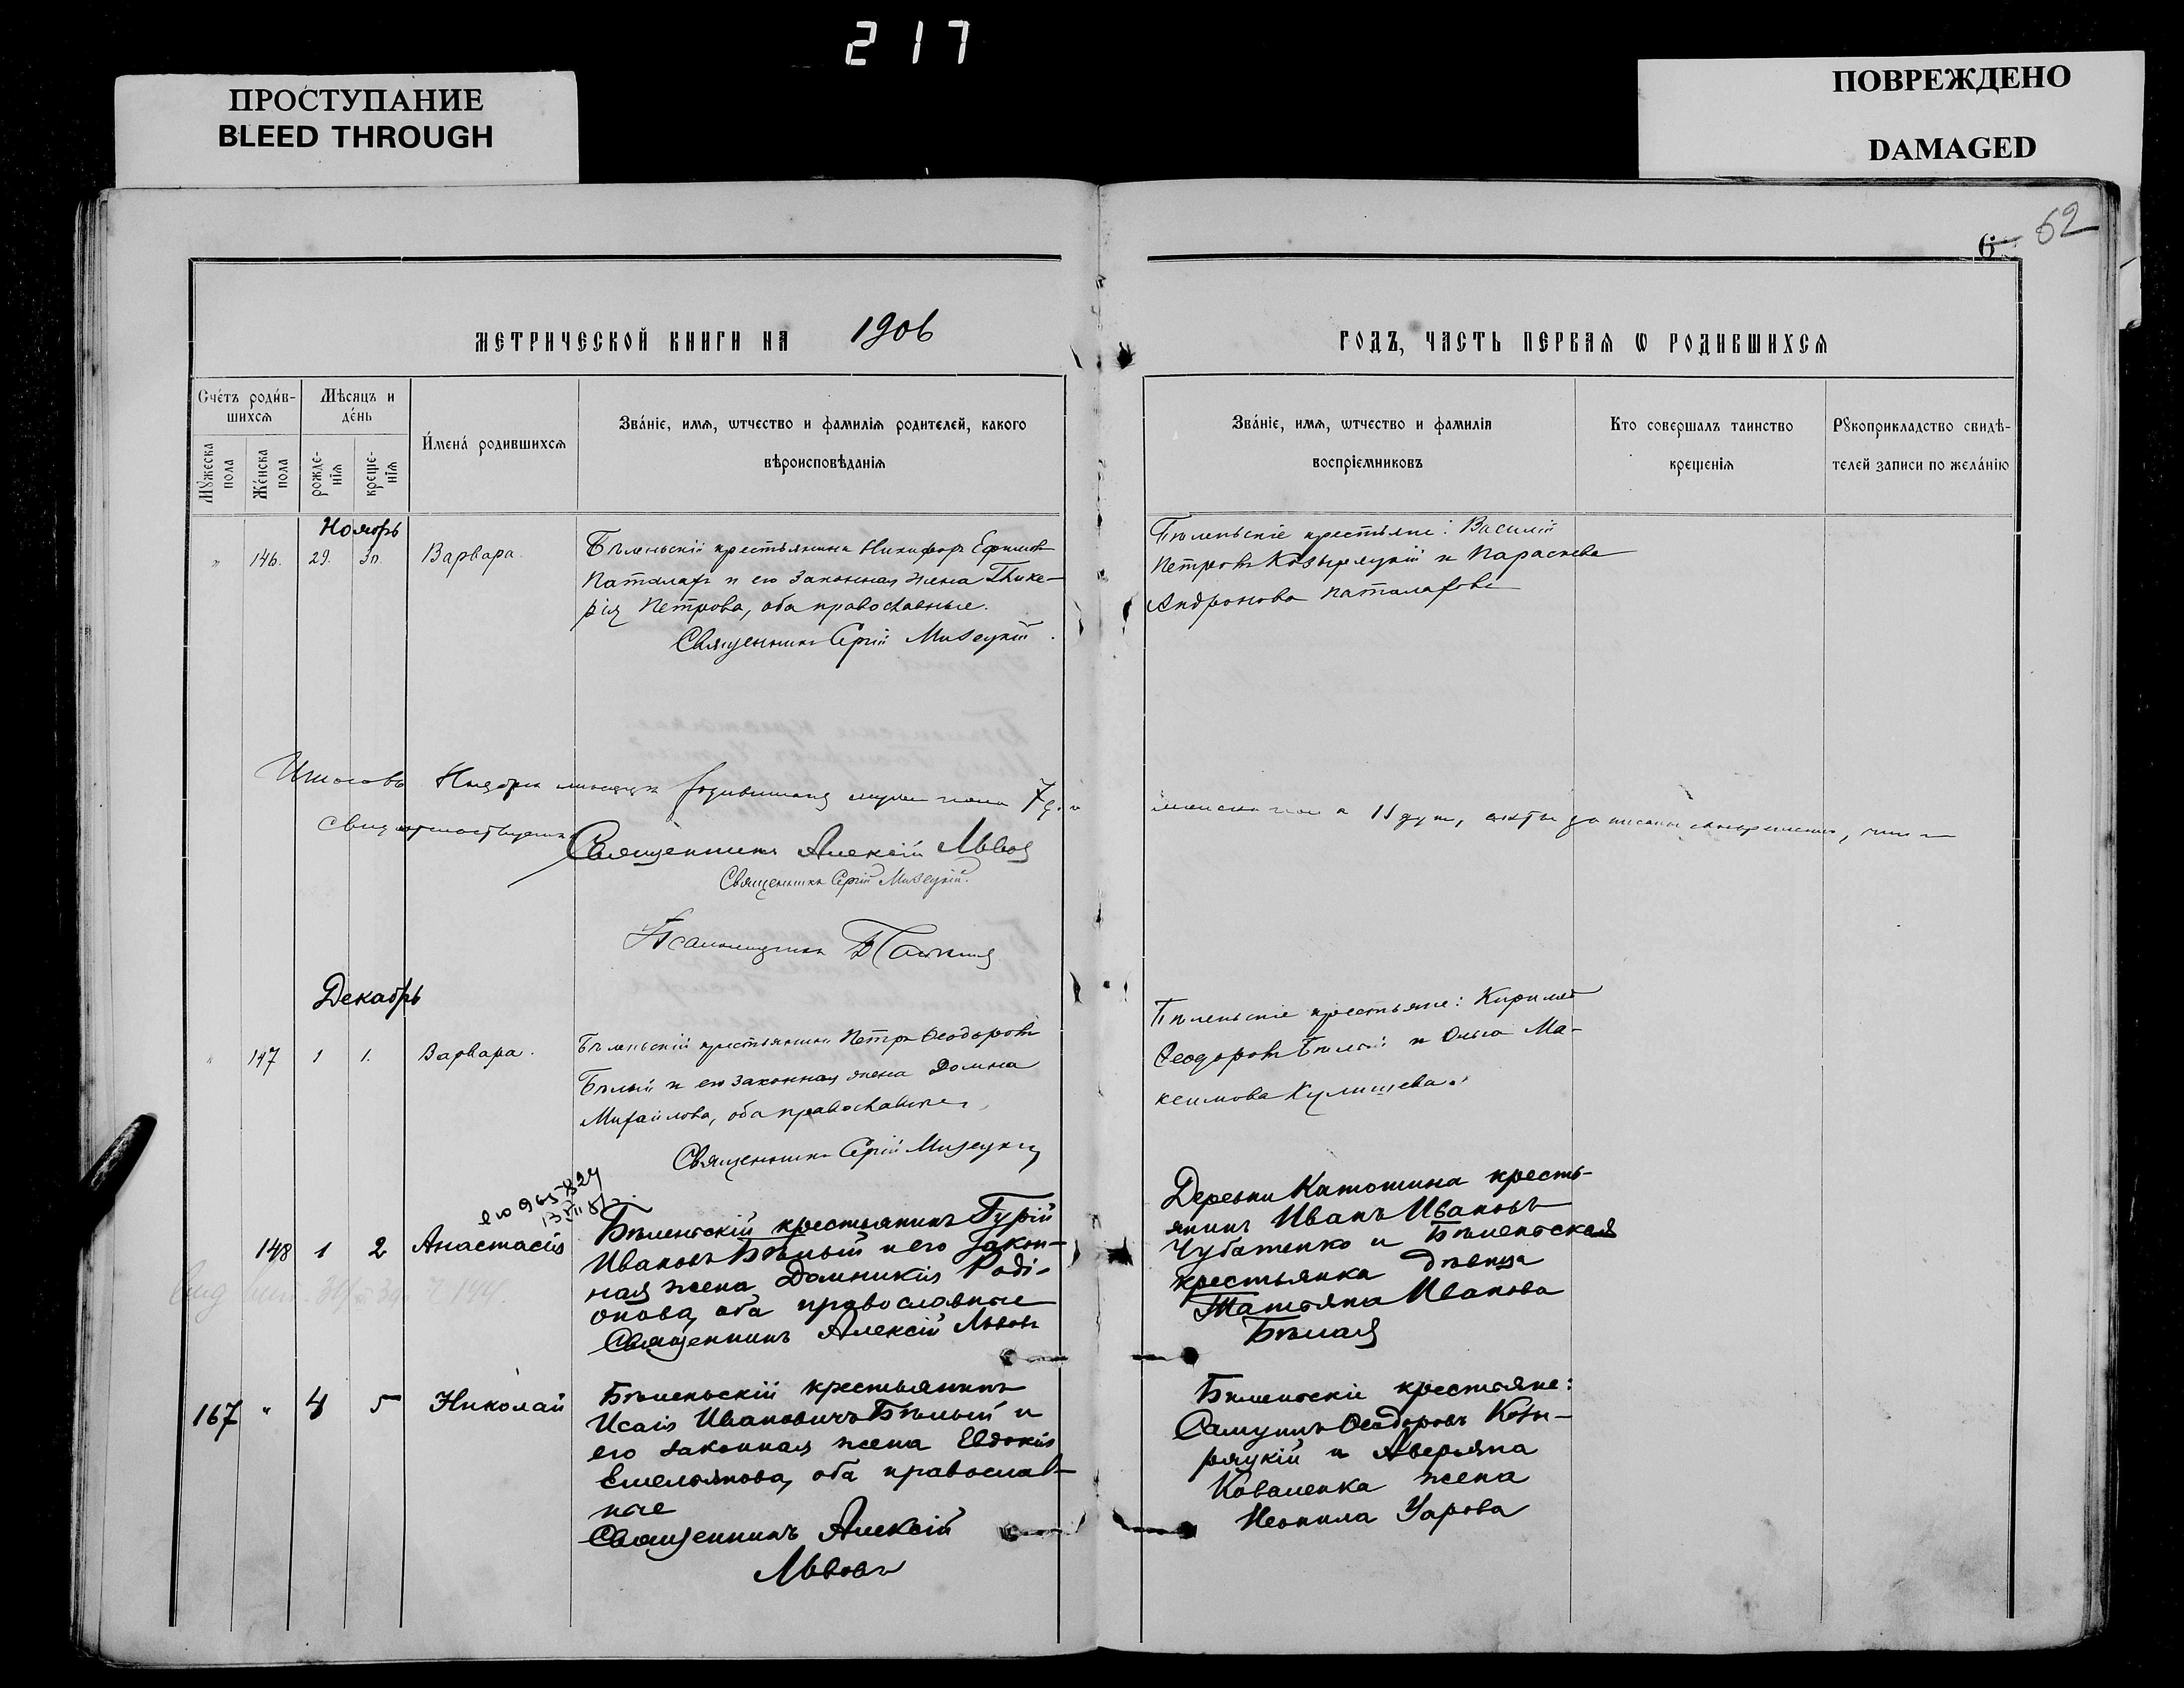 217
ПРОСТУПАНИЕ
BLEED THROUGH
ПОВРЕЖДЕНО
DAMAGED
62
МЕТРИЧЕСКОЙ КНИГИ НА 1906
ГОДЪ, ЧАСТЬ ПЕРВАѦ Ѡ РОДИВШИХСѦ
Сче́тъ роди́в-
шихсѧ
Мѣсяцъ и
де́нь
Мꙋжеска
пола
Же́нска
пола
рожде-
нїѧ
креще-
нїѧ
И́мена́ родившихсѧ
Зва́нїе, имѧ, ѡтчество и фамилїѧ родителей, какого
вѣроисповѣданїѧ
Зва́нїе, имѧ, ѡтчество и фамилїѧ
воспрїемниковъ
Кто совершалъ таинство
крещенїѧ
Рꙋкоприкладство свидѣ-
телей записи по жела́нїю
Ноябрь
" 146. 29. 30. Варвара.
Бѣленьскій крестьянинъ Никифоръ Ефимовъ
Паталахъ и его законная жена Глике-
рія Петрова, оба православные.
Священникъ Сергій Мизецкій.
Бѣленьскіе крестьяне: Василій
Петровъ Козыряцкій и Параскева
Андронова Паталахова
Итого въ Ноябрѣ мѣсяцѣ родившихся муж. пола 7 д. и
женска пола 11 душ, акты записаны
свидѣтельствуемъ
Священникъ Алексій Львовъ
Священникъ Сергій Мизецкій.
Псаломщикъ
Декабрь
" 147 1 1. Варвара.
Бѣленьскій крестьянинъ Петръ Ѳеодоровъ
Бѣлый и его законная жена Домна
Михайлова, оба православные
Священникъ Сергій Мизецкій
Бѣленьскіе крестьяне: Кириллъ
Ѳеодоровъ Бѣлый и Ольга Ма-
ксимова Кулишева.
148 1 2 Анастасія
Бѣленьскій крестьянинъ Гурій
Ивановъ Бѣлый и его закон-
ная жена Домникія Роді-
онова, оба православные
Священникъ Алексій Львовъ
Деревни Катошина кресть-
янинъ Иванъ Ивановъ
Чубатенко и Бѣленьская
крестьянка дѣвица
Татьяна Иванова
Бѣлая
167 " 4 5 Николай
Бѣленьскій крестьянинъ
Исаія Ивановичъ Бѣлый и
его законная жена Евдокія
Емельянова, оба православ-
ные
Священникъ Алексій
Львовъ
Бѣленьскіе крестьяне:
Самуилъ Ѳеодоровъ Козы-
ряцкій и Аверьяна
Коваленка жена
Неонила Уарова